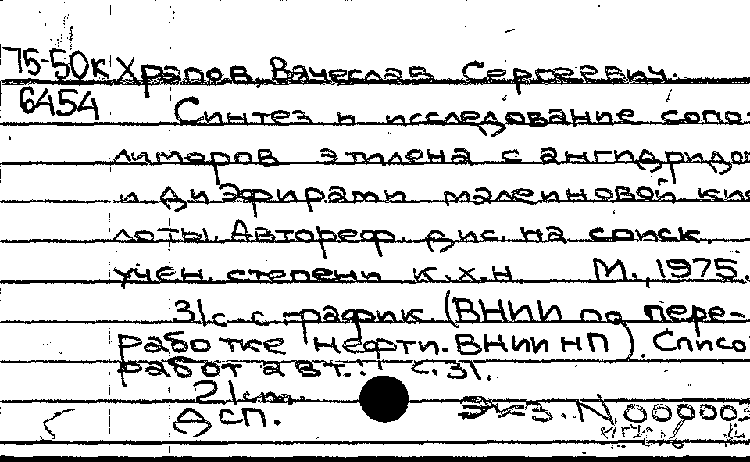 75-50к Храпов, Вячеслав Сергеевич.
6454 Синтез и исследование сопо-
лимеров этилена с ангидридо
и диэфирами малеиновой кис
лоты. Автореф. дис. на соиск.
учен. степени к.х.н М., 1975.
31с. с график. (ВНИИ по пере-
работке нефти. ВНИИ НП). Списо
работ авт.: с. 31.
ДСП. Экз. N 000003